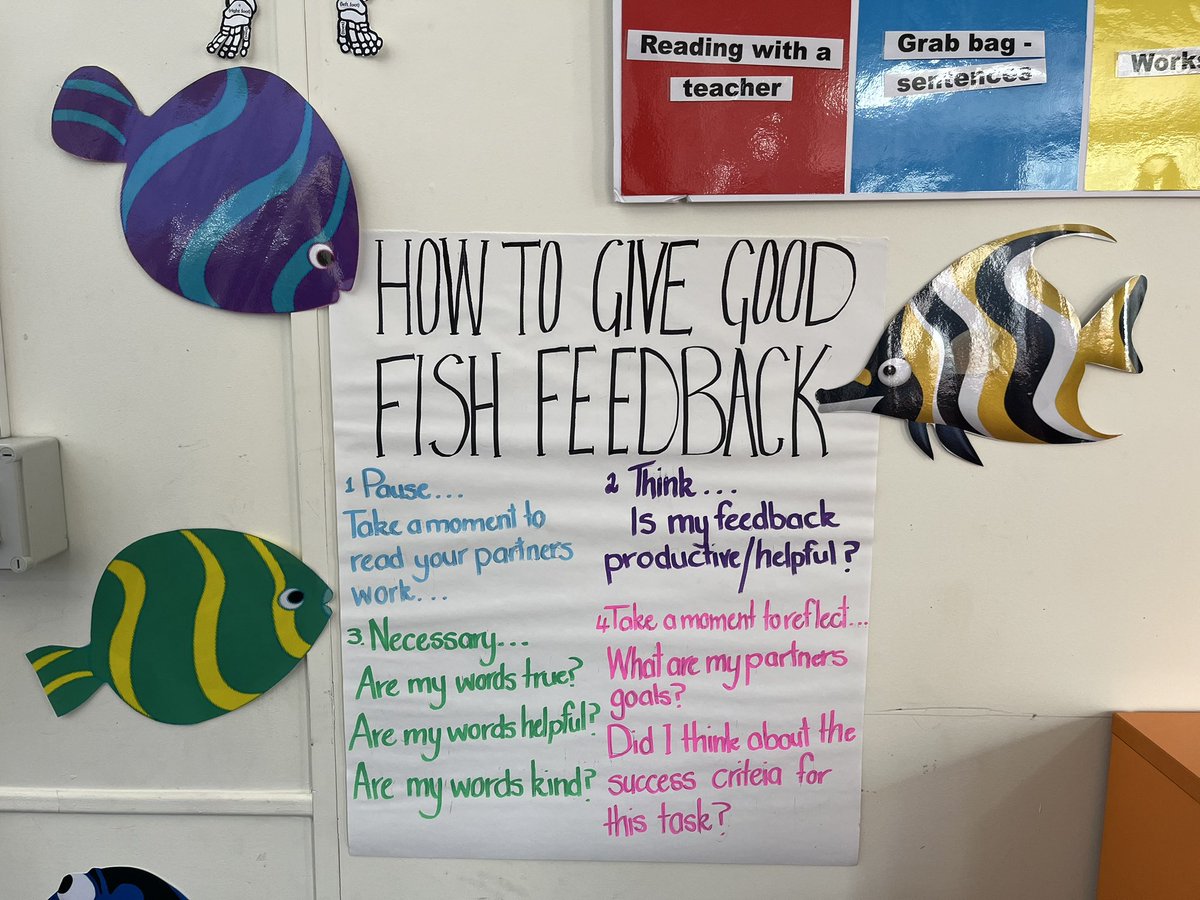 (right foot)
(left foot)
Reading with a
teacher
Grab bag -
sentences
HOW TO GIVE GOOD
FISH FEEDBACK
1 Pause....
Take a moment to
read your partners
work...
2 Think...
Is my feedback
productive/helpful?
3. Necessary...
Are my words true?
Are my words helpful?
Are my words kind?
4. Take a moment to reflect...
What are my partners
goals?
Did I think about the
success criteia for
this task?